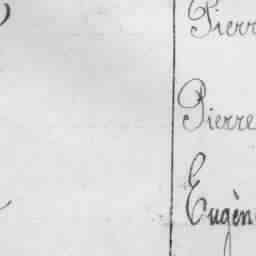 Pierr
Pierre
Eugèn